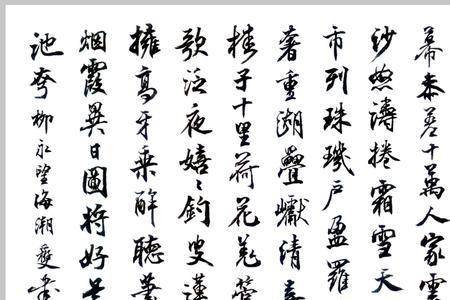 幕参差十萬人家雲
沙怒濤捲霜雪天
市列珠璣戶盈羅
奢重湖疊巘清
桂子十里荷花羌管
歌泛夜嬉々釣叟蓮
擁高牙乘醉聽簫
烟霞異日圖將好
池夸柳永望海潮